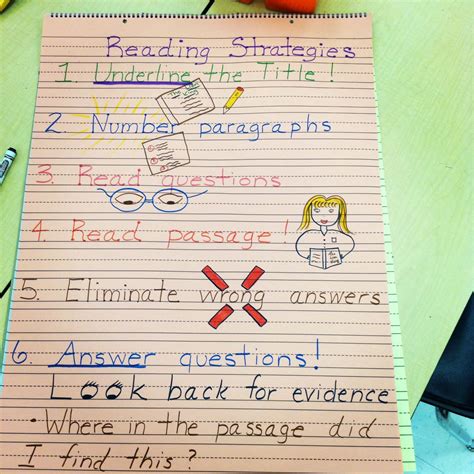 Reading Strategies
1. Underline the Title!
2. Number paragraphs
3. Read questions
4. Read passage!
5. Eliminate wrong answers
6. Answer questions!
Look back for evidence
• Where in the passage did
I find this?